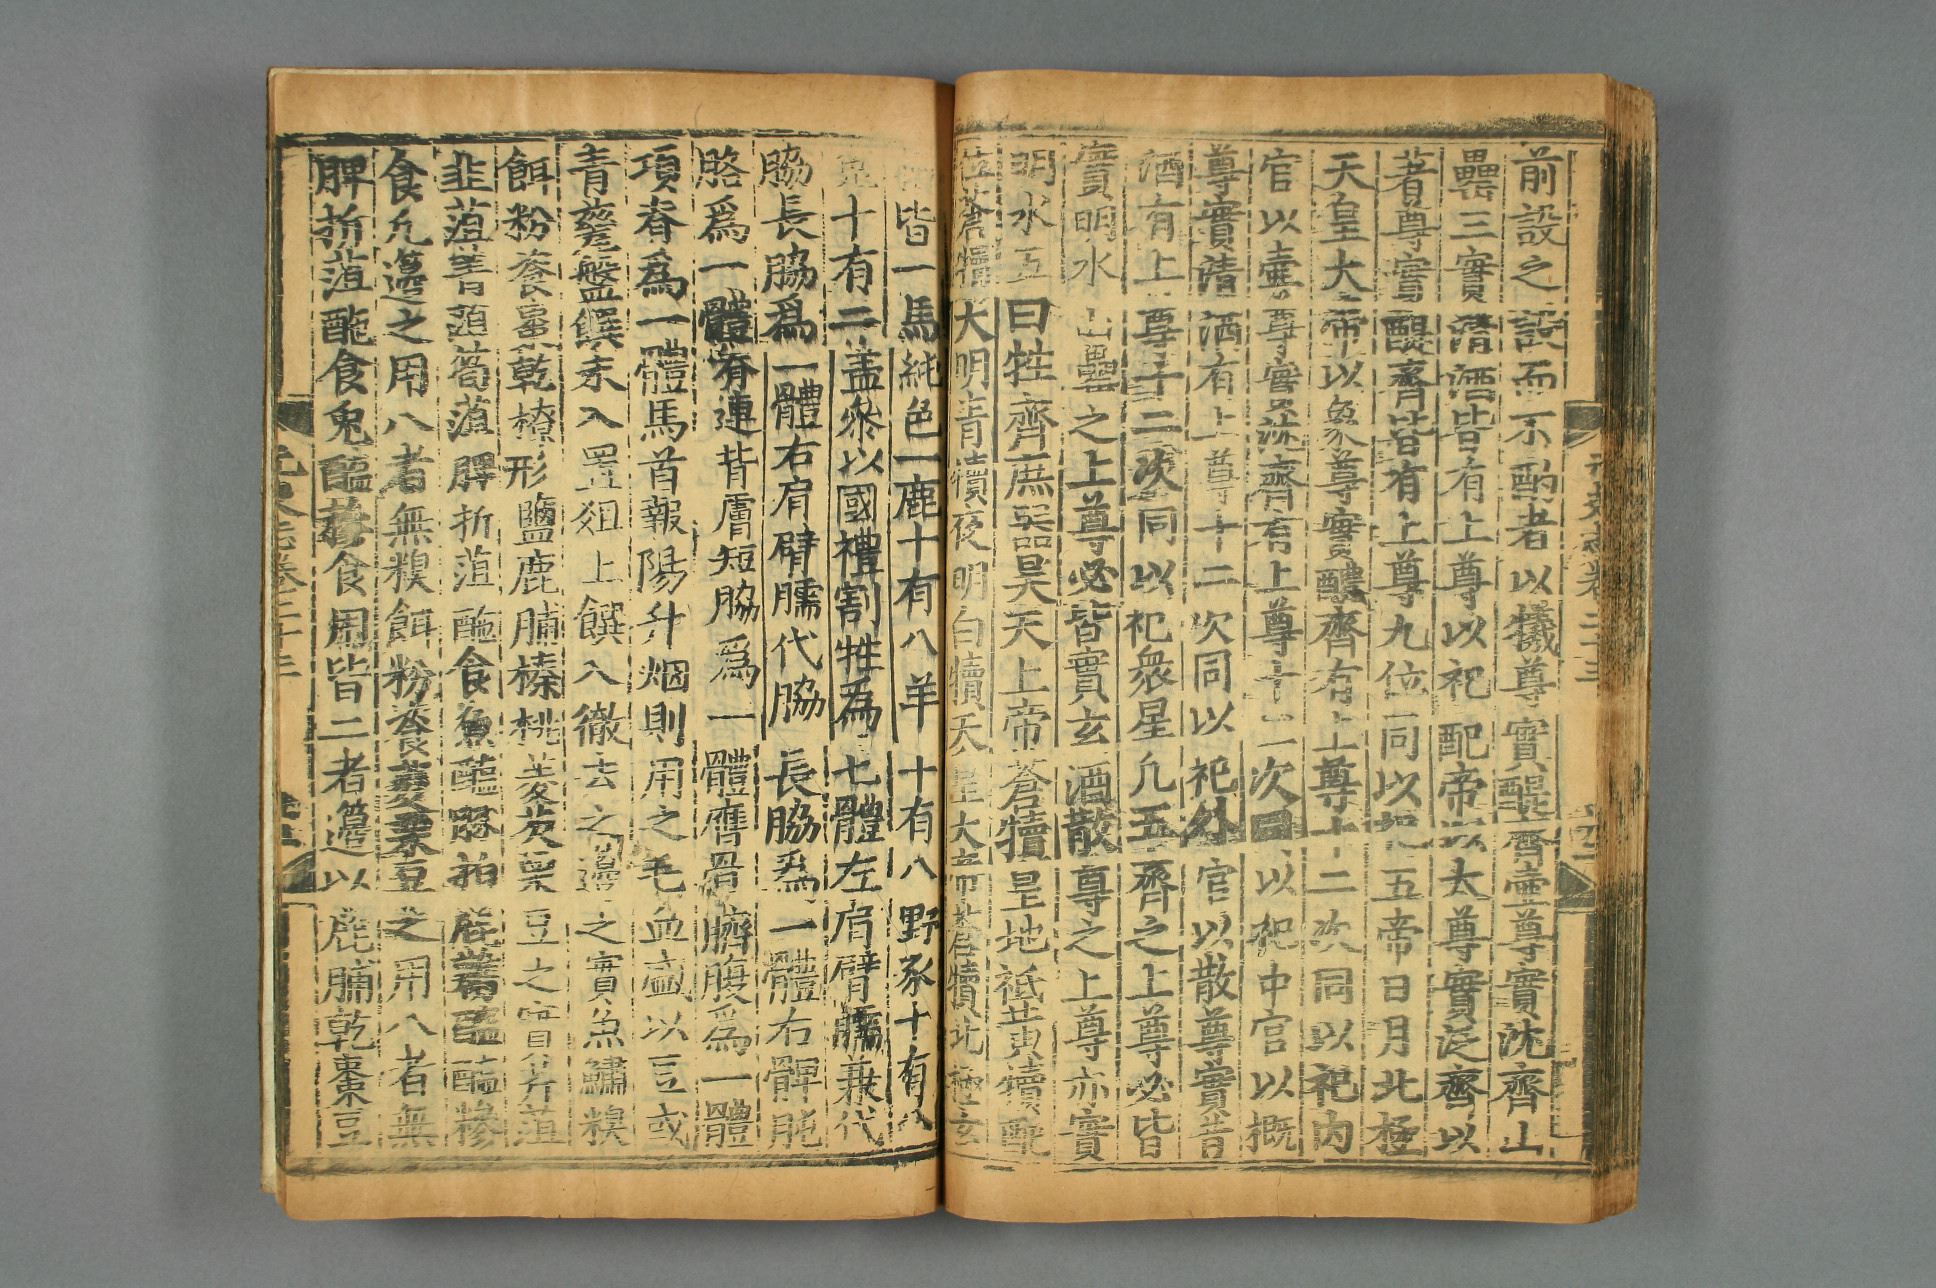 前設之設而不酌者以犧尊實醍齊壺尊實沈齊山
罍三實清酒皆有上尊以祀配帝以太尊實泛齊以
著尊實醴齊皆有上尊九位同以祀五帝日月北極
天皇大帝以象尊實醴齊有上尊十二次同以祀内
官以壷尊實沈齊有上尊十二次同以祀中官以概
尊實清酒有上尊十二次同以祀外官以散尊實昔
酒有上尊十二次同以祀衆星凡五齊之上尊必皆
實明水山罍之上尊必皆實玄酒散尊之上尊亦實
明水五曰牲齊庶器昊天上帝蒼犢皇地祇黄犢配
位蒼犢大明青犢夜明白犢天皇大帝蒼犢北極玄
犢皆一馬純色一鹿十有八羊十有八野豕十有八
兎十有二蓋參以國禮割牲為七體左肩臂臑兼代
脇長脇爲一體右肩臂臑代脇長脇爲一體右髀肫
胳爲一體脊連背膚短脇爲一體膺骨臍腹爲一體
項脊爲一體馬首報陽升烟則用之毛血盛以豆或
青甆盤饌未入置俎上饌入徹去之籩之實魚鱐糗
餌粉餈棗乾橑形鹽鹿脯榛桃菱芡栗豆之實芹菹
韭菹菁菹筍菹脾折菹酏食魚醢豚拍鹿臡醓醢糝
食凡籩之用八者無糗餌粉餈菱栗豆之用八者無
脾折菹酏食兔醢糝食用皆二者籩以鹿脯乾棗豆
元史志卷二十三